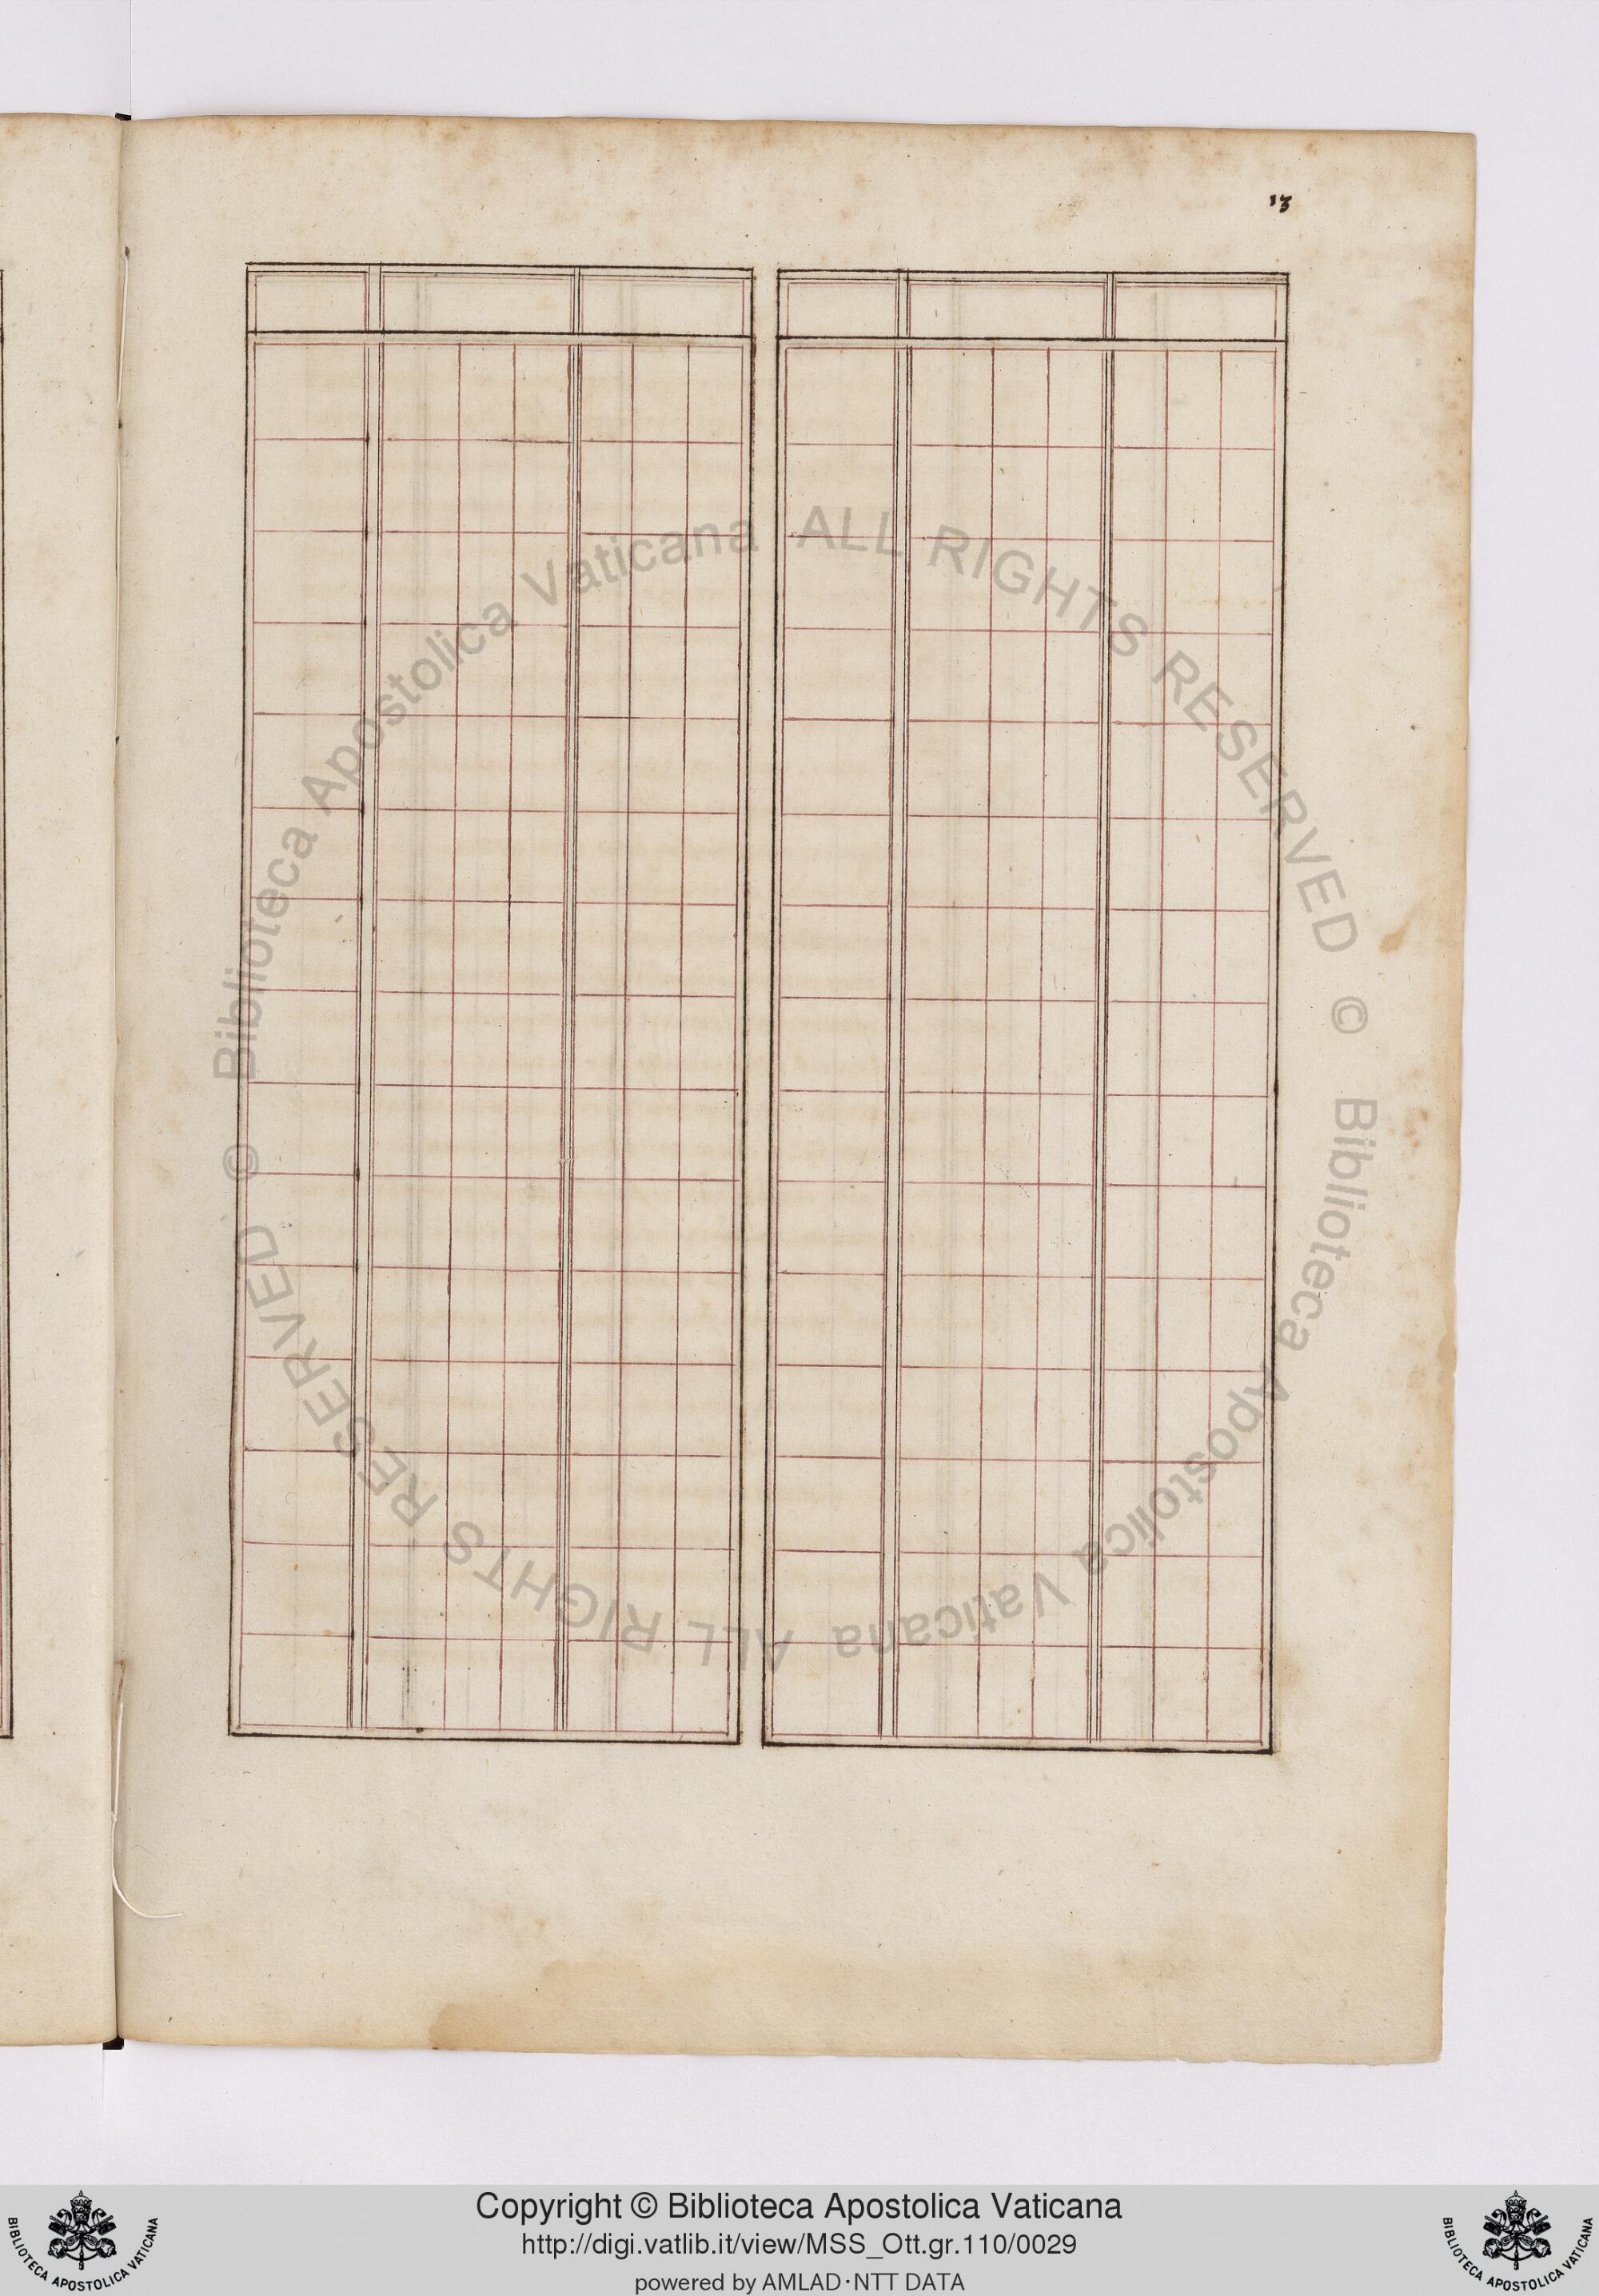 13
© Biblioteca Apostolica Vaticana ALL RIGHTS RESERVED © Biblioteca Apostolica Vaticana ALL RIGHTS RESERVED
Copyright © Biblioteca Apostolica Vaticana
http://digi.vatlib.it/view/MSS_Ott.gr.110/0029
powered by AMLAD·NTT DATA
BIBLIOTECA APOSTOLICA VATICANA
BIBLIOTECA APOSTOLICA VATICANA